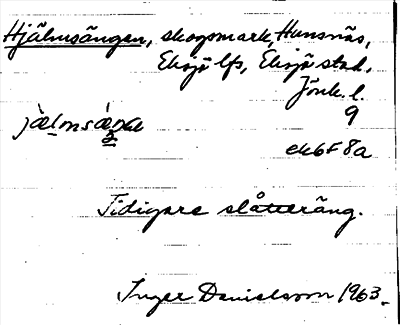 Hjälmsängen, skogsmark, Hunsnäs,
Eksjö lfs, Eksjö stad.
Jönk. l.
9
ek6F8a
Tidigare slåtteräng.
Inger Danielsson 1963.